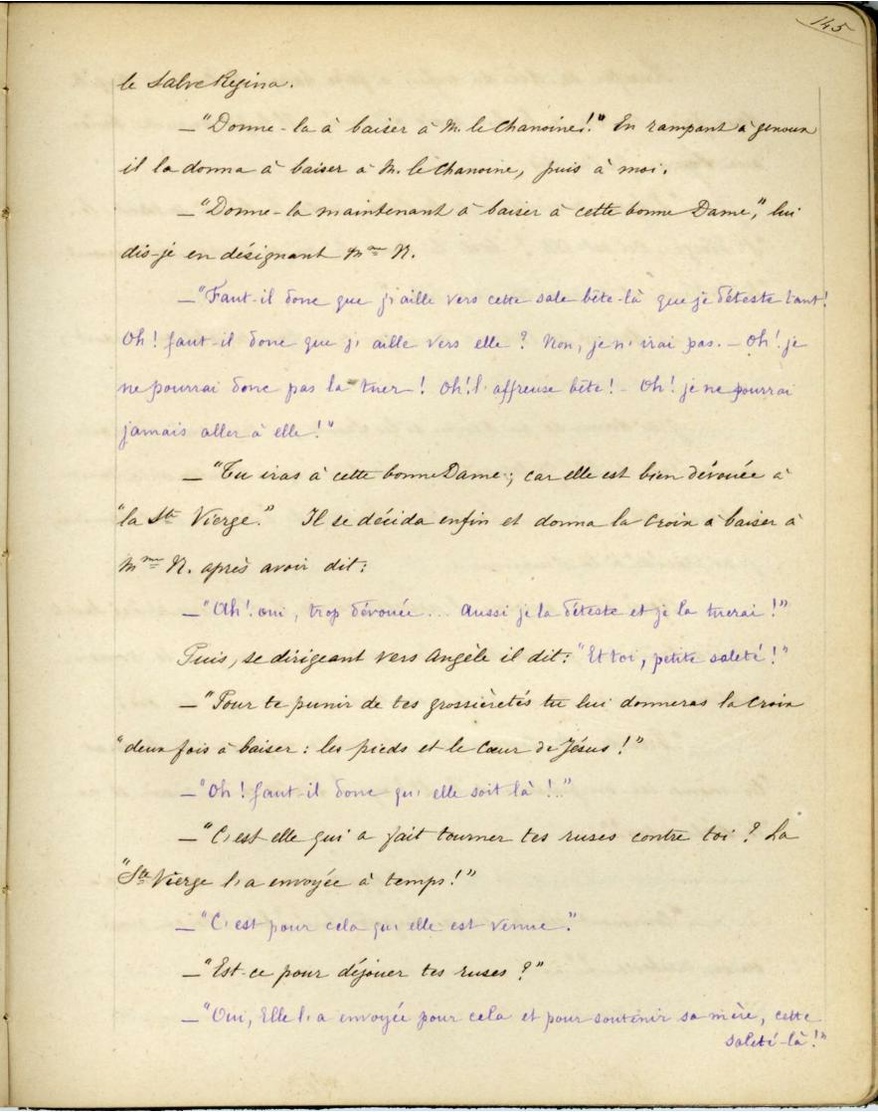 145
le Salve Regina.
—"Donne-la à baiser à M. le Chanoine!" En rampant à genoux
il la donna à baiser à M. le Chanoine, puis à moi.
—"Donne-la maintenant à baiser à cette bonne Dame," lui
dis-je en désignant Mme N.
—"Faut-il donc que j'aille vers cette sale bête-là que je déteste tant!
Oh! faut-il donc que j'aille vers elle? Non, je n'irai pas. — Oh! je
ne pourrai donc pas la tuer! Oh! l'affreuse bête! — Oh! je ne pourrai
jamais aller à elle!"
—"Tu iras à cette bonne Dame; car elle est bien dévouée à
"la Ste Vierge." Il se décida enfin et donna la croix à baiser à
Mme N. après avoir dit:
—"Ah! oui, trop dévouée... Aussi je la déteste et je la tuerai!"
Puis, se dirigeant vers Angèle il dit: "Et toi, petite saleté!"
—"Pour te punir de tes grossièretés tu lui donneras la Croix
"deux fois à baiser: les pieds et le Cœur de Jésus!"
—"Oh! faut-il donc qu'elle soit là!.."
—"C'est elle qui a fait tourner tes ruses contre toi? La
"Ste Vierge l'a envoyée à temps!"
—"C'est pour cela qu'elle est venue."
—"Est-ce pour déjouer tes ruses?"
—"Oui, Elle l'a envoyée pour cela et pour soutenir sa mère, cette
saleté-là!"